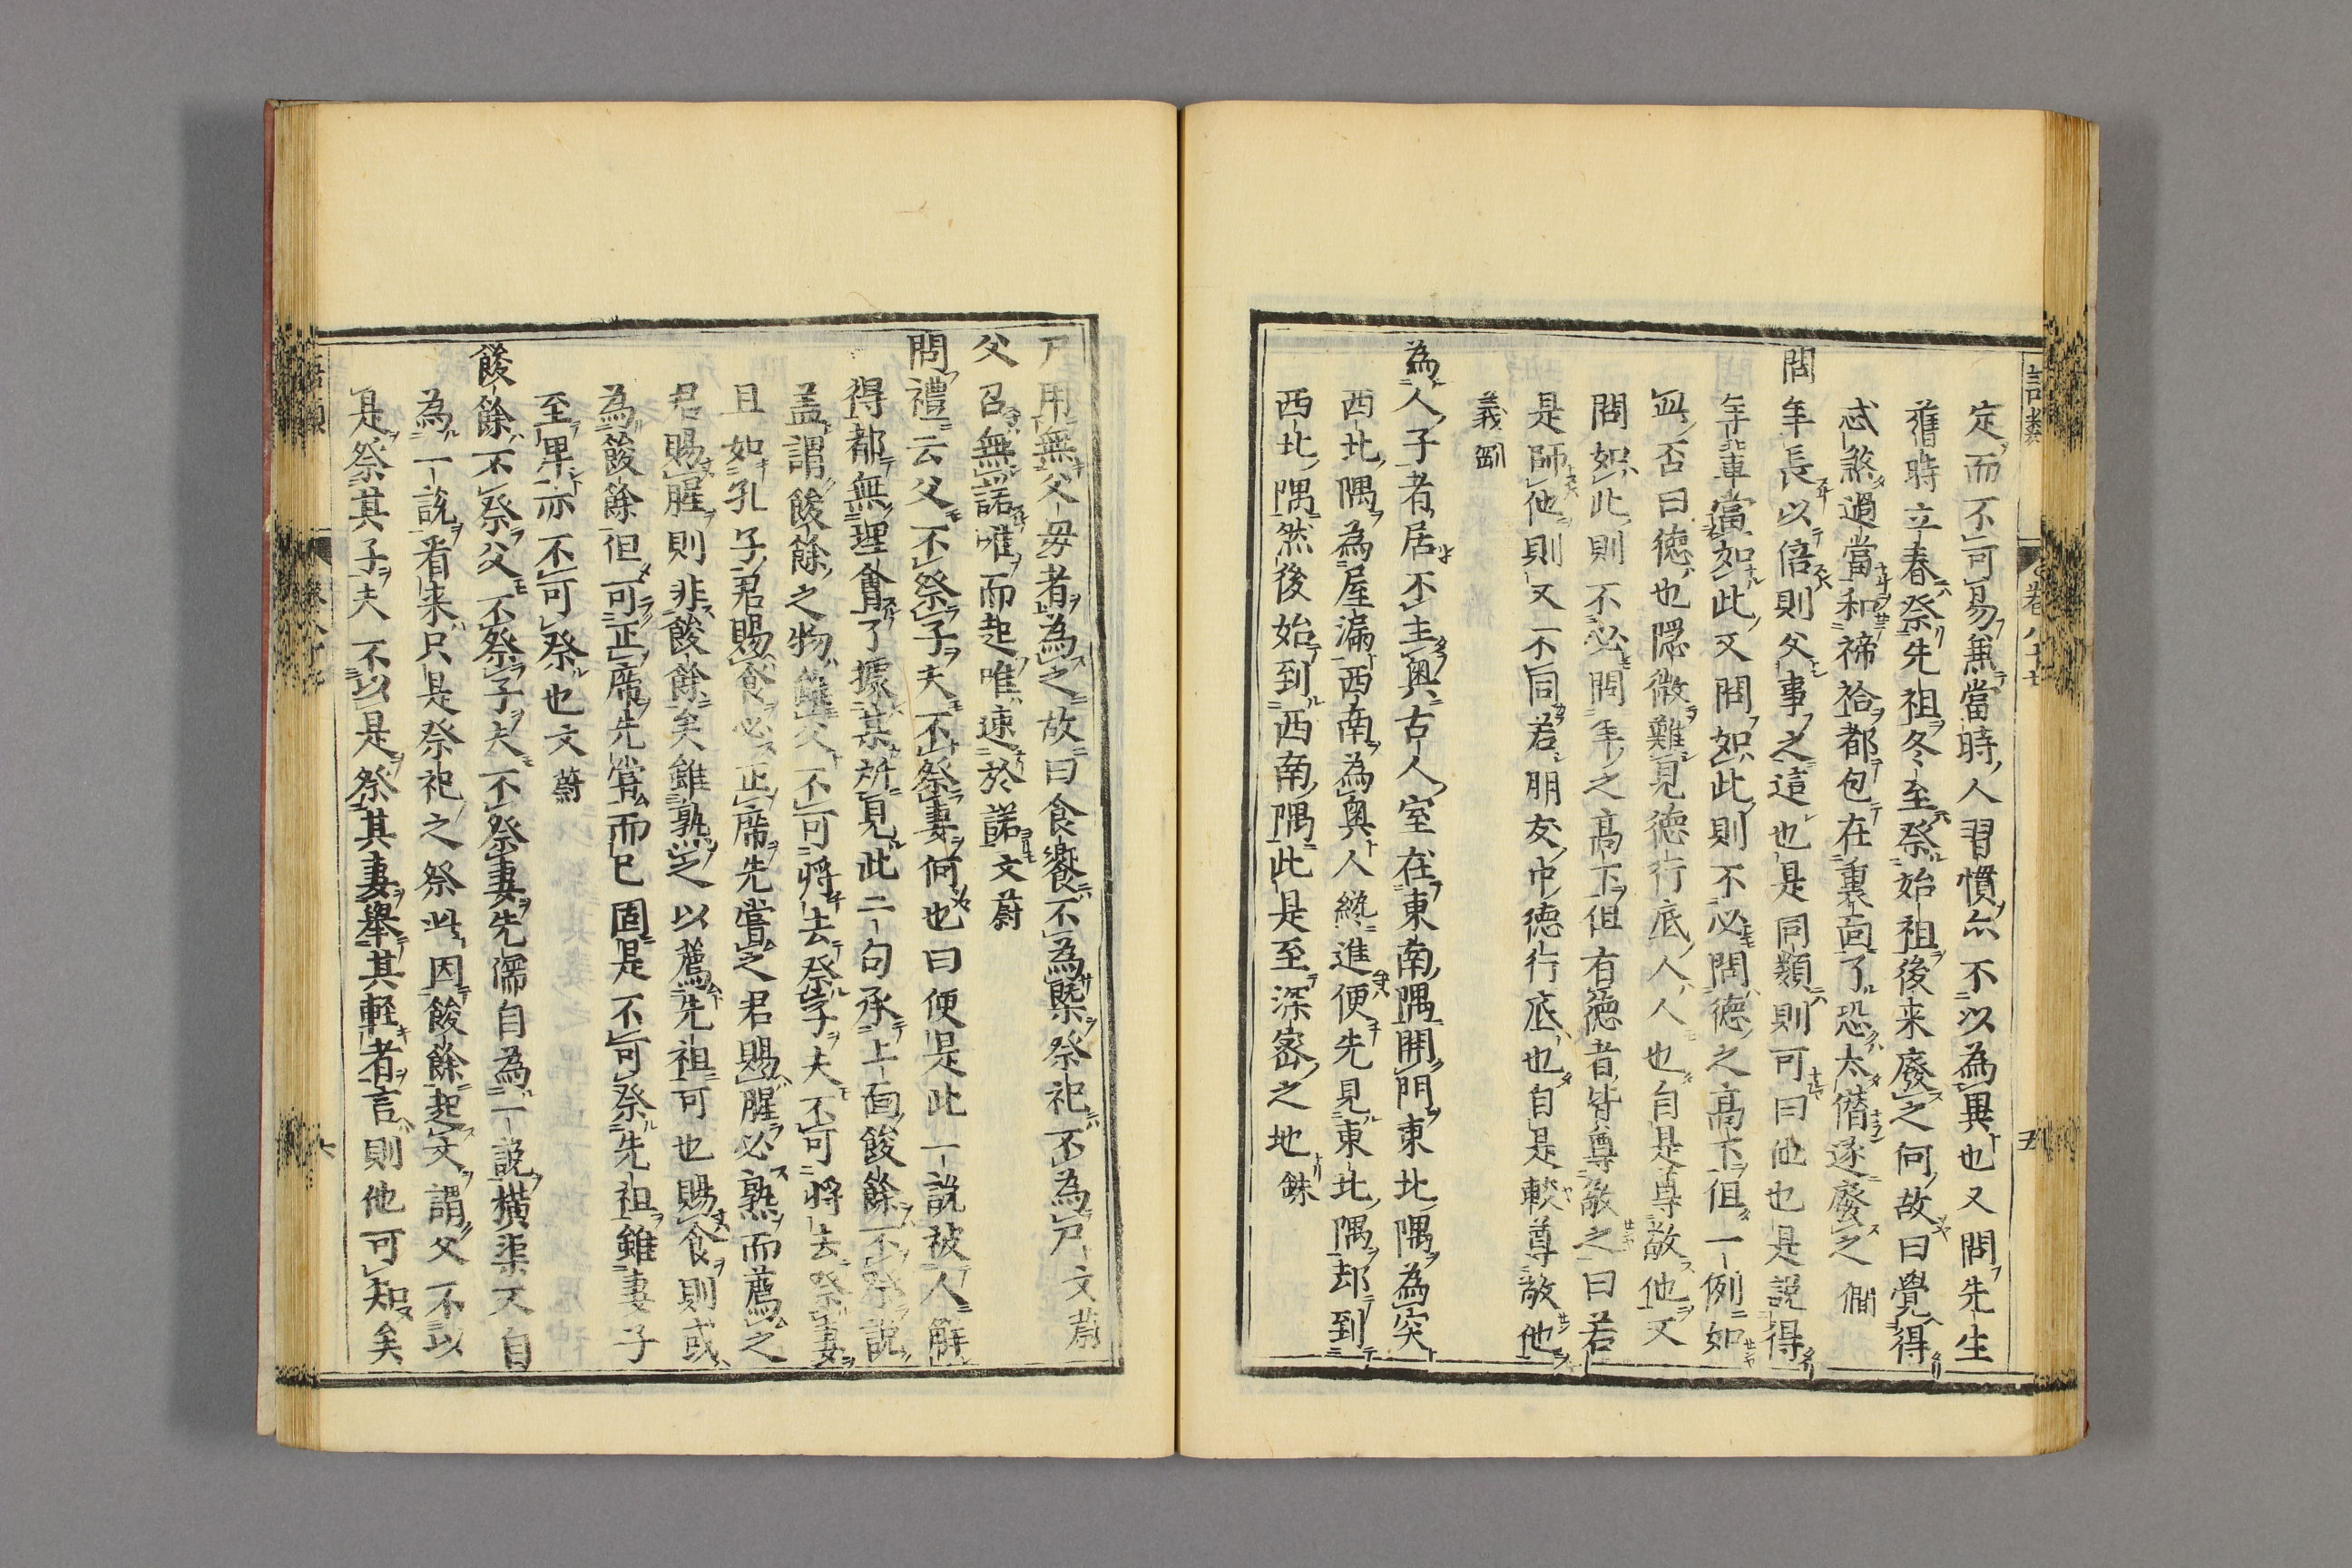 定而不可易兼當時人習慣亦不以為異也又問先生
舊時立春祭先祖冬至祭始祖後来廢之何故曰覺得
忒煞過當和禘祫都包在裏面了恐太僣遂廢之 僩
問年長以倍則父事之這也是同類則可曰他也是說得
年輩當如此又問如此則不必問德之高下但一例如
此否曰德也隱微難見德行底人人也自是尊敬他又
問如此則不必問年之高下但有德者皆尊敬之曰若
是師他則又不同若朋友中德行底也自是較尊敬他
義剛
為人子者居不主奧古人室在東南隅開門東北隅為突
西北隅為屋漏西南為奧人纔進便先見東北隅却到
西北隅然後始到西南隅此是至深密之地 銖
語類
卷八十七
五
尸用無父母者為之故曰食饗不為槩祭祀不為尸 文蔚
父召無諾唯而起唯速於諾 文蔚
問禮云父不祭子夫不祭妻何也曰便是此一說被人解
得都無理會了據某所見此二句承上面餕餘不祭說
盖謂餕餘之物雖父不可將去祭子夫不可將去祭妻
且如孔子君賜食必正席先嘗之君賜腥必熟而薦之
君賜腥則非餕餘矣雖熟之以薦先祖可也賜食則或
為餕餘但可正席先嘗而已固是不可祭先祖雖妻子
至卑亦不可祭也 文蔚
餕餘不祭父不祭子夫不祭妻先儒自為一說橫渠又自
為一說看来只是祭祀之祭此因餕餘起文謂父不以
是祭其子夫不以是祭其妻舉其輕者言則他可知矣
六